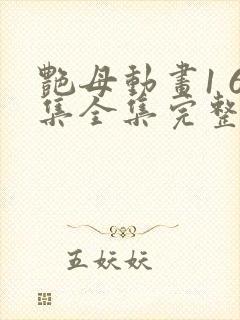 艷母動畫1 6
集全集完整
五妖妖